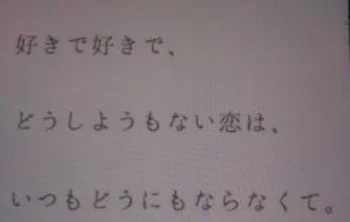 好きで好きで、
どうしようもない恋は、
いつもどうにもならなくて。